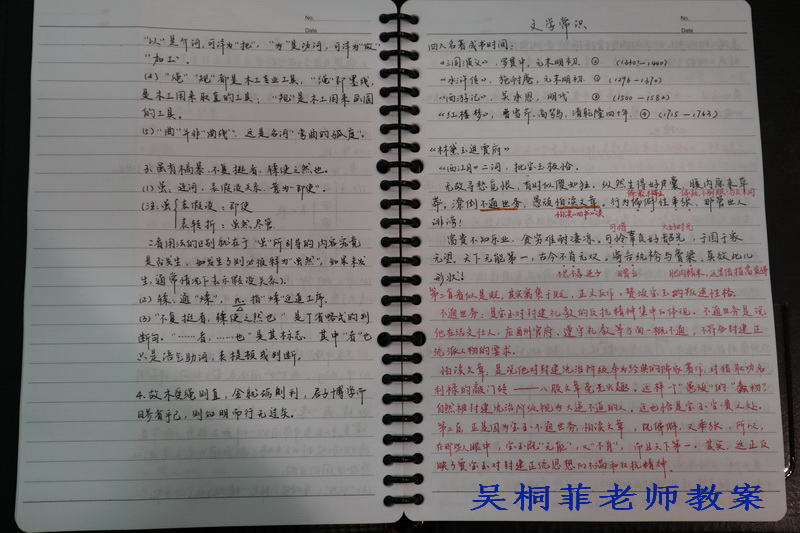 No.
Date
"以"是介词,可译为"把","为"是动词,可译为"做"
"加工"。
(4) "绳" "规"都是木工专业工具,"绳"即墨线,
是木工用来取直的工具;"规"是木工用来画圆
的工具。
(5) "曲"并非"曲线",这是名词"弯曲的弧度"。
3. 虽有槁暴,不复挺者,輮使之然也。
(1) 虽,连词,表假设关系,意为"即使"。
(注:虽 表假设:即使
表转折:虽然,尽管
二者用法的区别就在于"虽"所引导的内容究竟
是否发生,如发生了则必被释为"虽然",如果未发
生,通常情况下表示假设关系).
(2) 輮,通"煣",指"煣"这道工序.
(3) "不复挺者,輮使之然也"是个省略式的判
断句。"……者,……也"是其标志,其中"者"也
只是语气助词,表提顿或判断。
4. 故木受绳则直,金就砺则利,君子博学而
日参省乎己,则知明而行无过矣。
No.
Date
文学常识
四大名著成书时间:
《三国演义》,罗贯中,元末明初 ② (1330?-1400)
《水浒传》,施耐庵,元末明初. ① (1296-1370)
《西游记》,吴承恩,明代 ③ (1500-1582)
《红楼梦》,曹雪芹、高鹗,清乾隆四十年. ④ (1715-1763)
《林黛玉进贾府》
《西江月》二词,批宝玉极恰.
无故寻愁觅恨,有时似傻如狂.纵然生得好皮囊,腹内原来草
莽。潦倒不通世务,愚顽怕读文章。行为偏僻性乖张,那管世人
诽谤!
富贵不知乐业,贫穷难耐凄凉。可怜辜负好韶光,于国于家
无望。天下无能第一,古今不肖无双。寄言纨绔与膏粱:莫效此儿
形状!
第二首看似是贬,其实寓褒于贬,正文反作,赞颂宝玉的叛逆性格.
不通世务:是宝玉对封建礼教的反抗精神集中反映。不通世务是说
他在结交仕人,应酬官府、遵守礼教等方面一概不通,不符合封建正
统派人物的要求。
怕读文章,是说他对封建统治阶级奉为经典的儒家著作,对猎取功名
利禄的敲门砖——八股文章毫无兴趣。这样个"愚顽"的"蠢物"
自然被封建统治阶级视为大逆不道的人,这也恰是宝玉可贵之处。
第二首,正是因为宝玉不通世务,怕读文章,既偏僻,又乖张,所以,
在那些人眼中,宝玉既"无能",又"不肖",而且天下第一。其实,这正反
映了贾宝玉对封建正统思想的叛逆和反抗精神.
吴桐菲老师教案